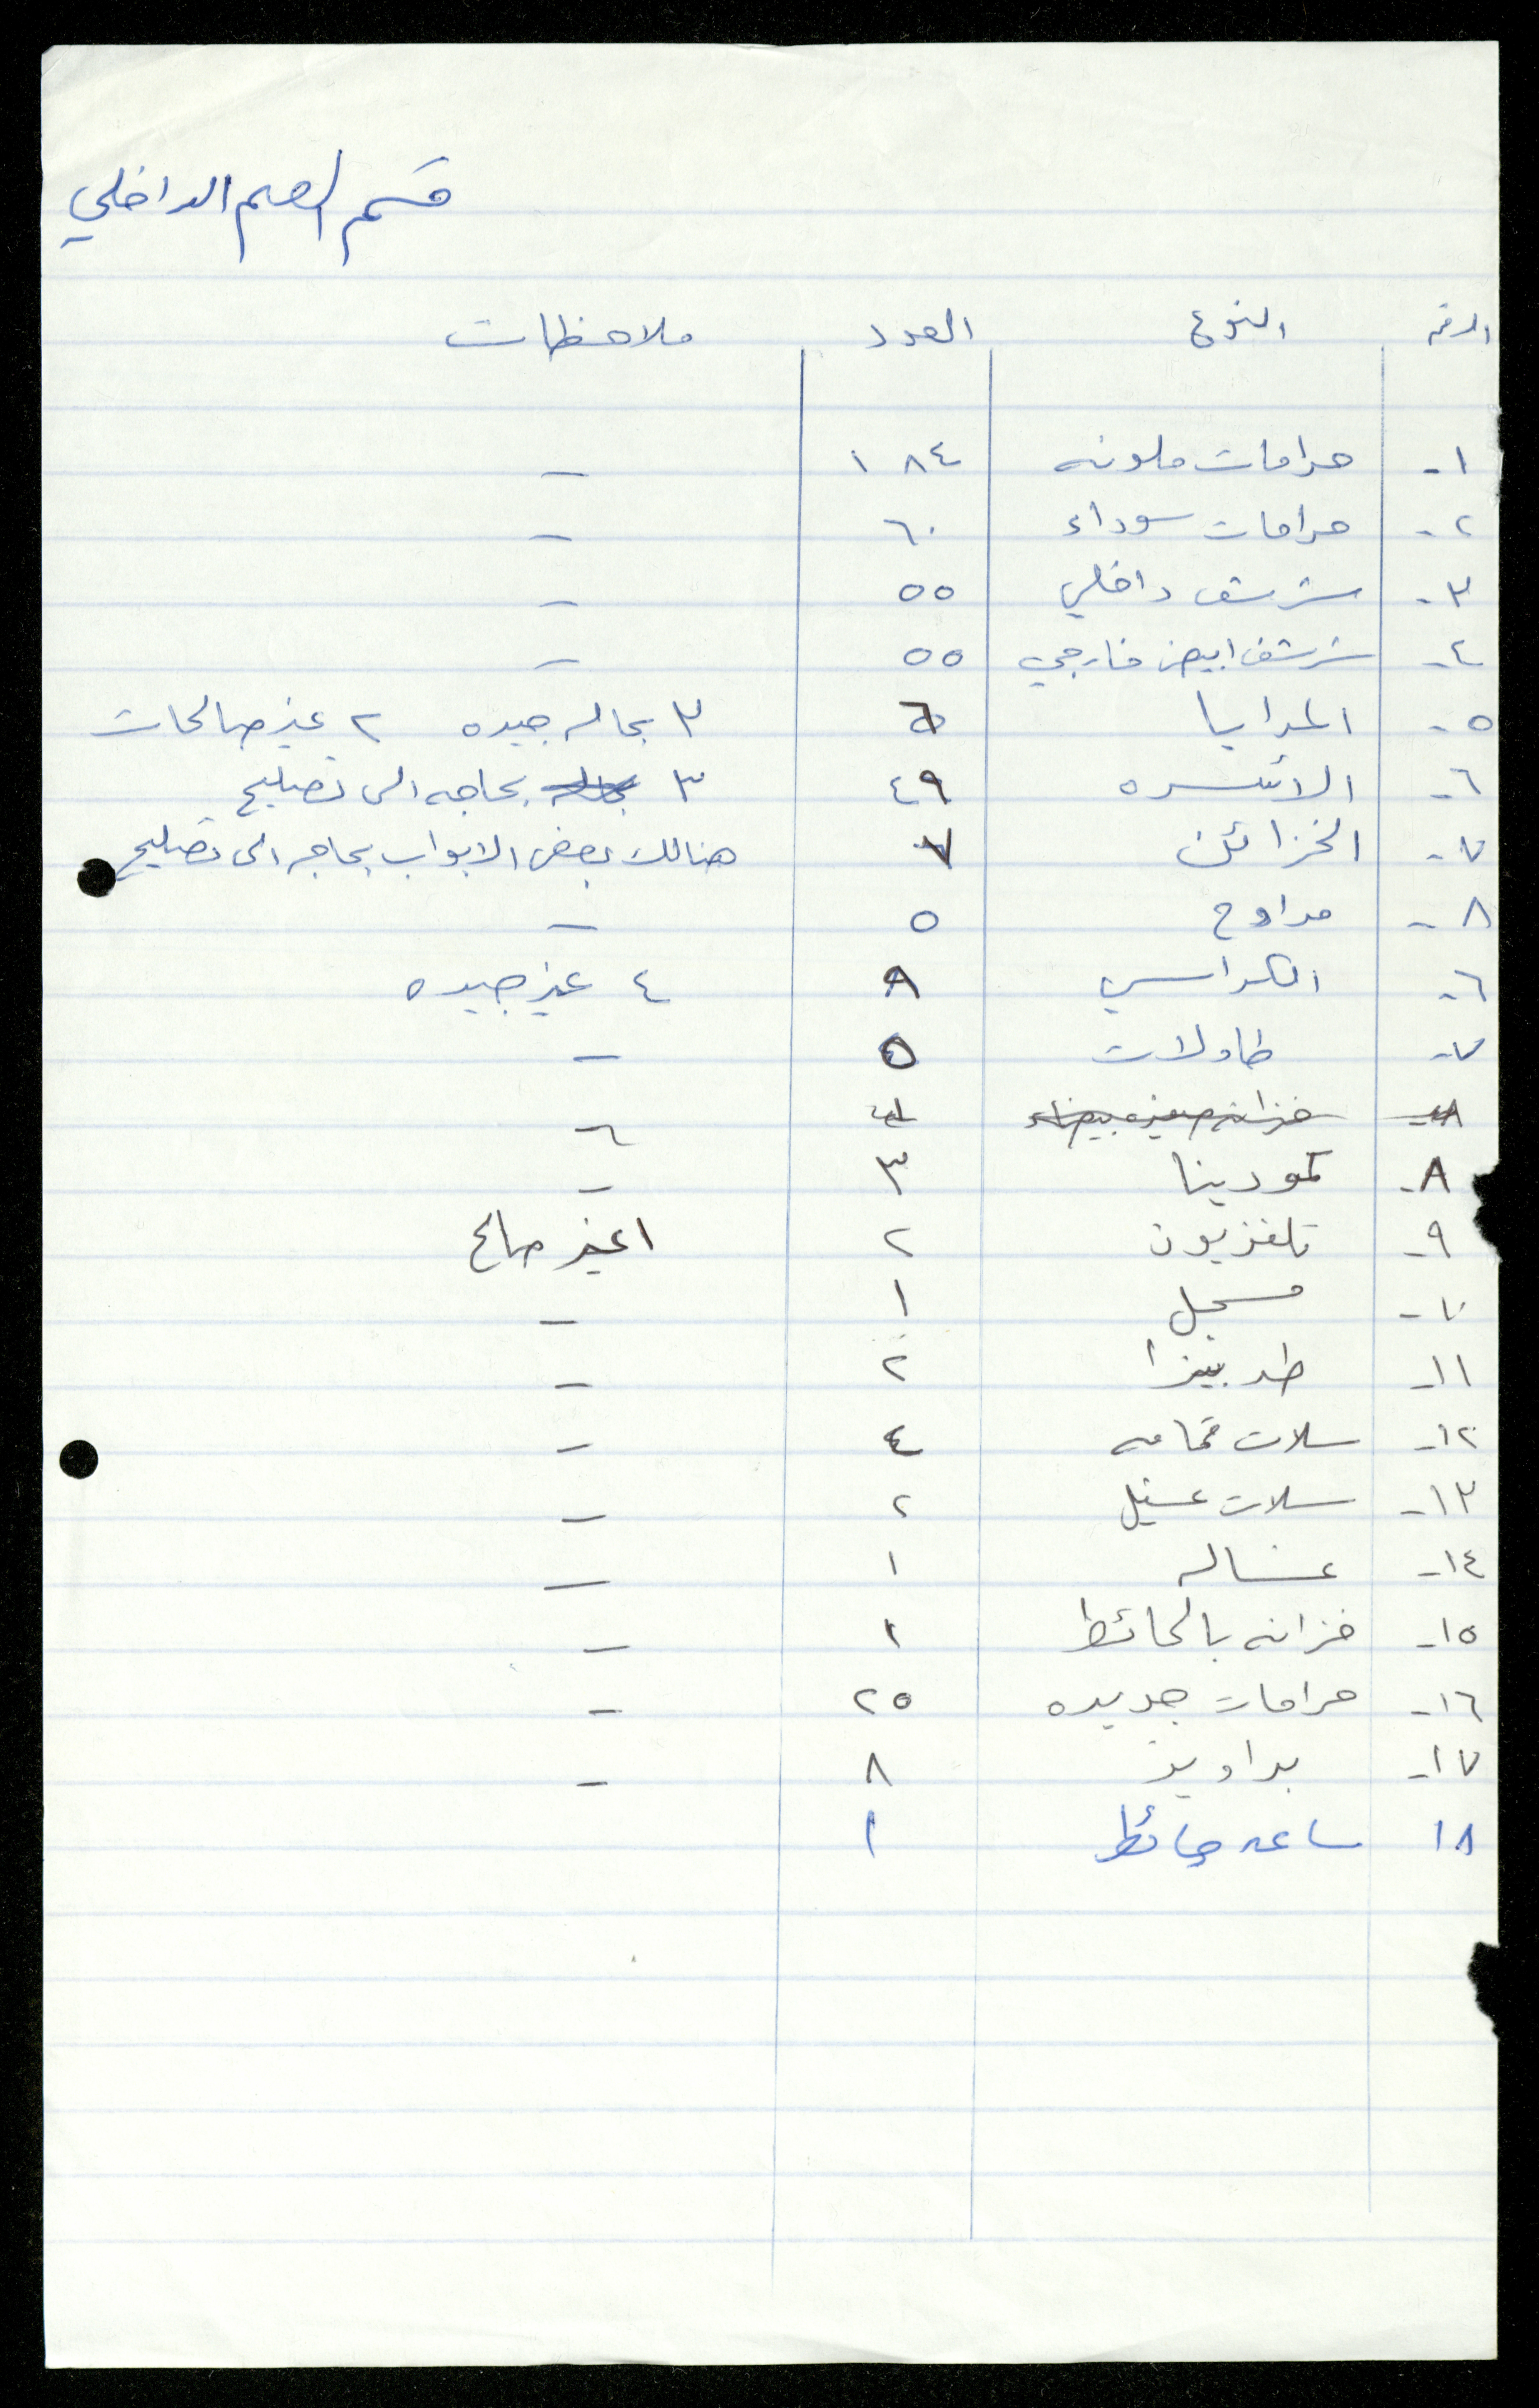 قسم الصم الداخلي
الرقم النوع العدد ملاحظات
١- حرامات ملونه ١٨٤ -
٢- حرامات سوداء ٦٠ -
٣- شرشف داخلي ٥٥ -
٤- شرشف ابيض خارجي ٥٥ -
٥- المرايا ٣ بحاله جيده ٢ غير صالحات
٦- الاسره ٤٩ ٣ بحاجه الى تصليح
٧- الخزائن ٧ هنالك بعض الابواب بحاجه الى تصليح
٨- مراوح ٥ -
٦- الكراسي ٨ ٤ غير جيده
٧- طاولات ٥ -
٨- خزانه صغيره بيضاء -
٨- كمودينا ٣ -
٩- تلفزيون ٢ ١ غير صالح
١٠- مسجل ١ -
١١- طربيزا ٢ -
١٢- سلات قمامه ٤ -
١٣- سلات غسيل ٢ -
١٤- غساله ١ -
١٥- خزانه بالحائط ١ -
١٦- حرامات جديده ٢٥ -
١٧- براويز ٨ -
١٨ ساعه حائط ١